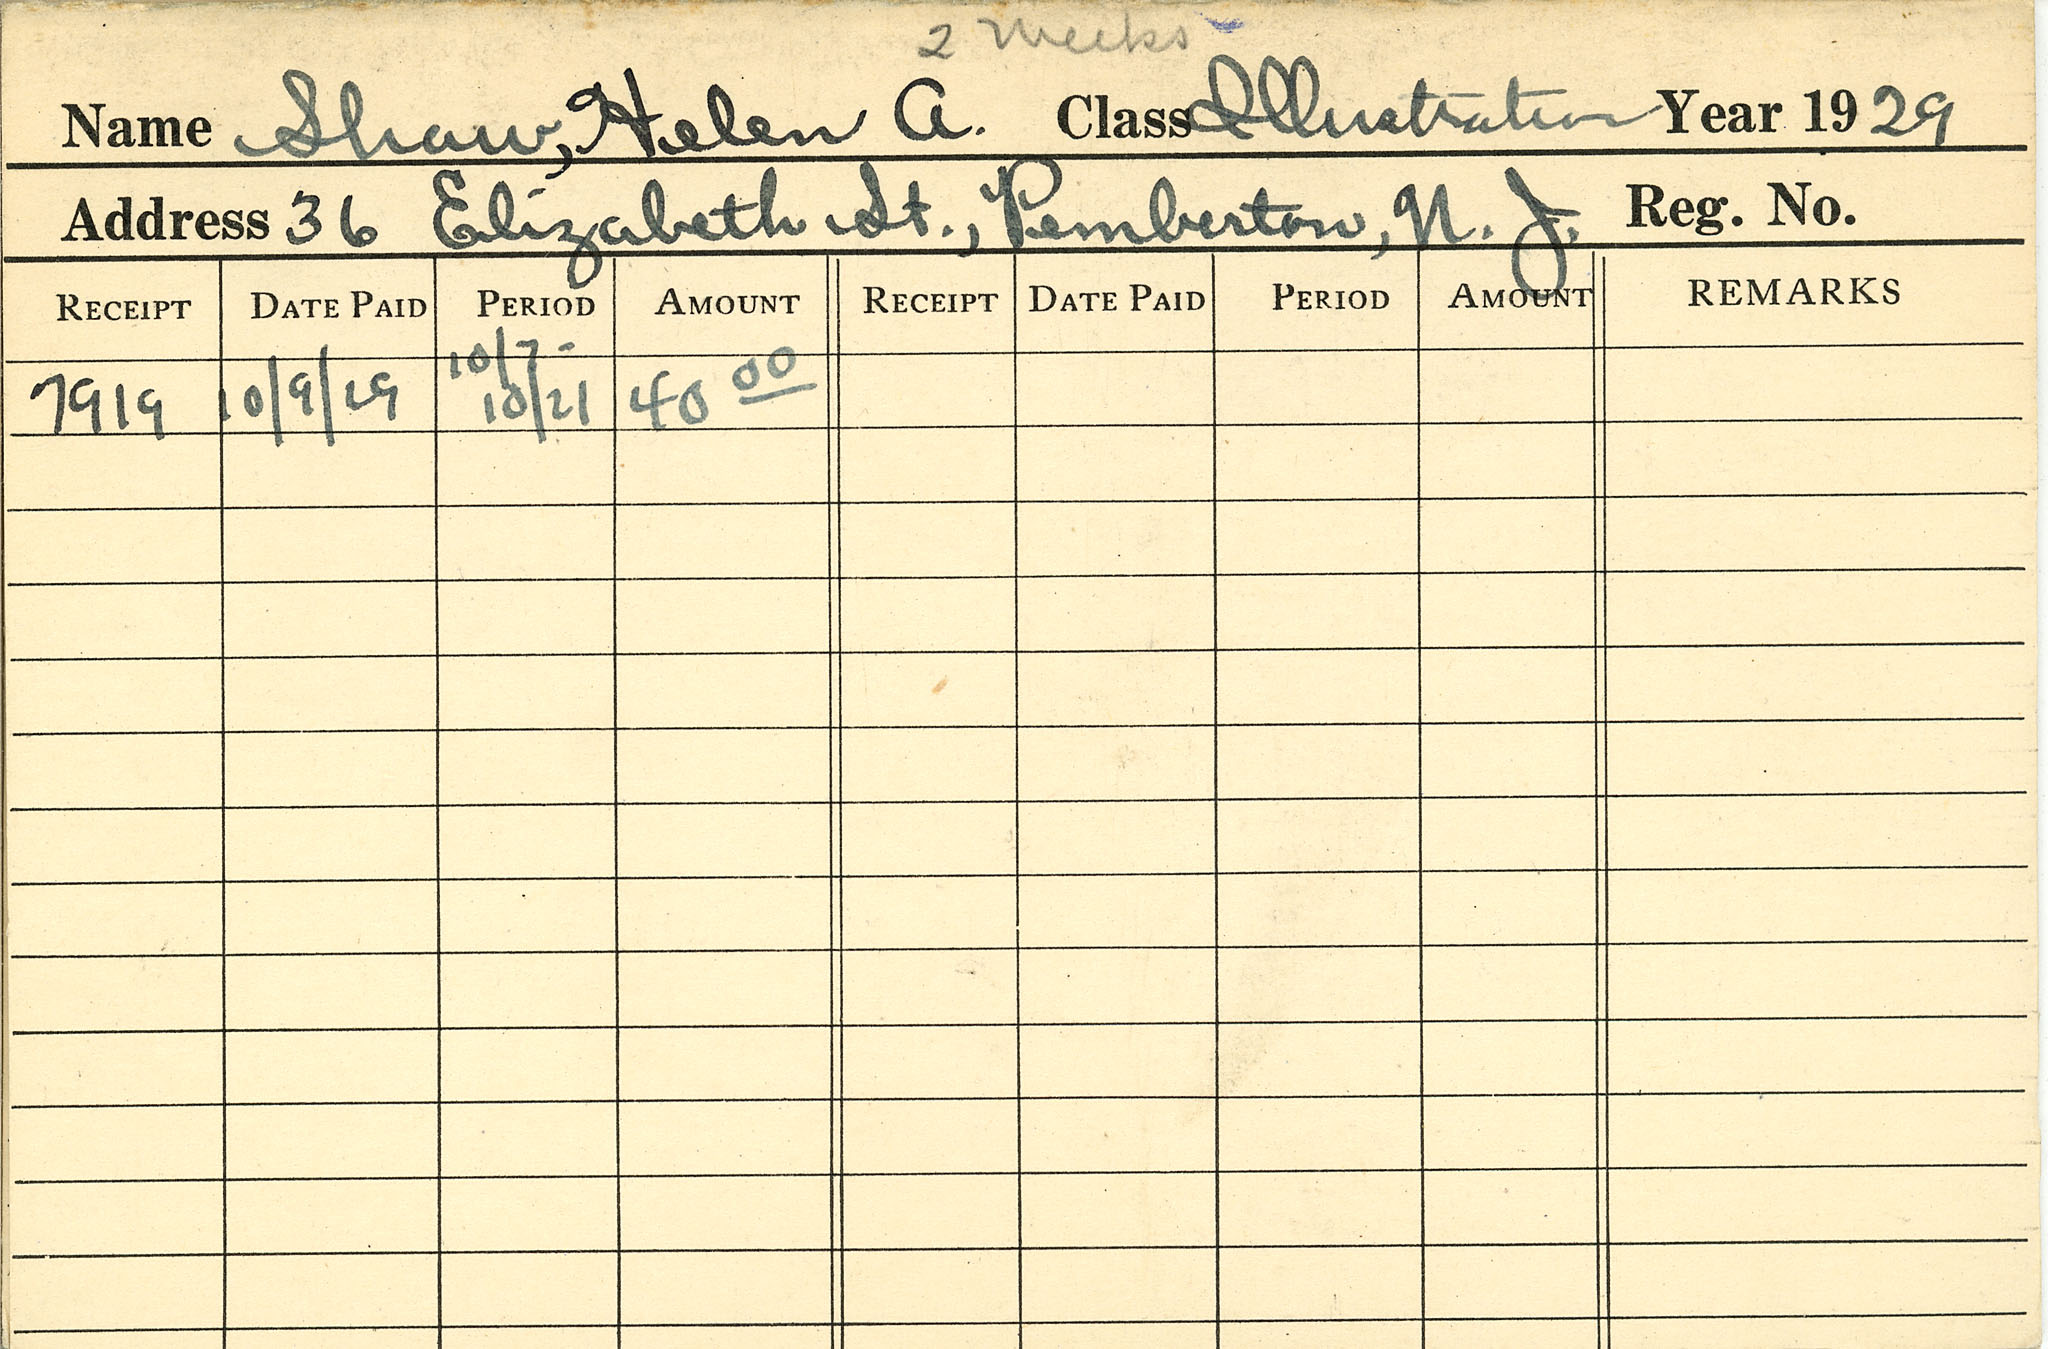 2 Weeks
Name Shaw, Helen A. Class Illustration Year 1929
Address 36 Elizabeth St., Pemberton, N. J. Reg. No.
RECEIPT DATE PAID PERIOD AMOUNT RECEIPT DATE PAID PERIOD AMOUNT REMARKS
10/7-
7919 10/9/29 10/21 40 00